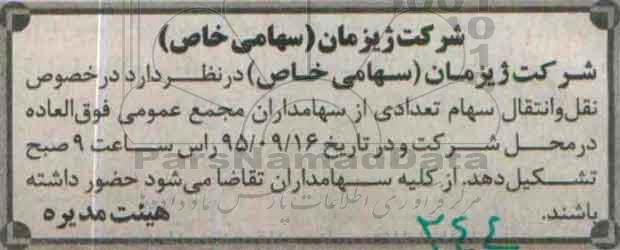 شرکت ژیزمان (سهامی خاص)
شرکت ژیزمان (سهامی خاص) در نظر دارد در خصوص
نقل وانتقال سهام تعدادی از سهامداران مجمع عمومی فوق العاده
در محل شرکت و در تاریخ ۹۵/۰۹/۱۶ راس ساعت ۹ صبح
تشکیل دهد. از کلیه سهامداران تقاضا می شود حضور داشته
باشند.
هیئت مدیره
ParsNamadData
۳۴۴